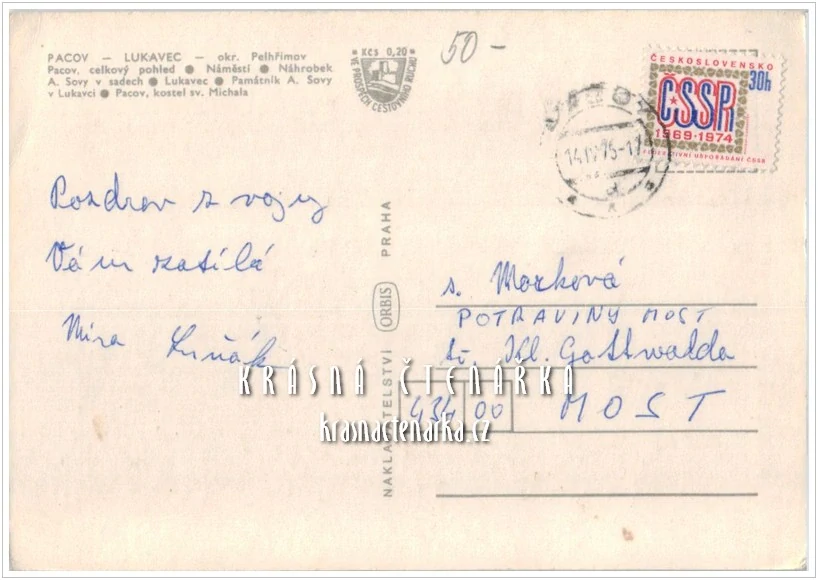 PACOV — LUKAVEC — okr. Pelhřimov
Pacov, celkový pohled ● Náměstí ● Náhrobek
A. Sovy v sadech ● Lukavec ● Památník A. Sovy
v Lukavci ● Pacov, kostel sv. Michala
Kčs 0,20
VE PROSPĚCH CESTOVNÍHO RUCHU
50 -
ČESKOSLOVENSKO
30h
ČSSR
1969·1974
FEDERATIVNÍ USPOŘÁDÁNÍ ČSSR
PACOV
14.IV.75-17
Pozdrav z vojny
Vám zasílá
Míra
NAKLADATELSTVÍ ORBIS PRAHA
s. Morková
POTRAVINY MOST
tř. Kl. Gottwalda
434 00 MOST
KRÁSNÁ ČTENÁRKA
krasnactenarka.cz